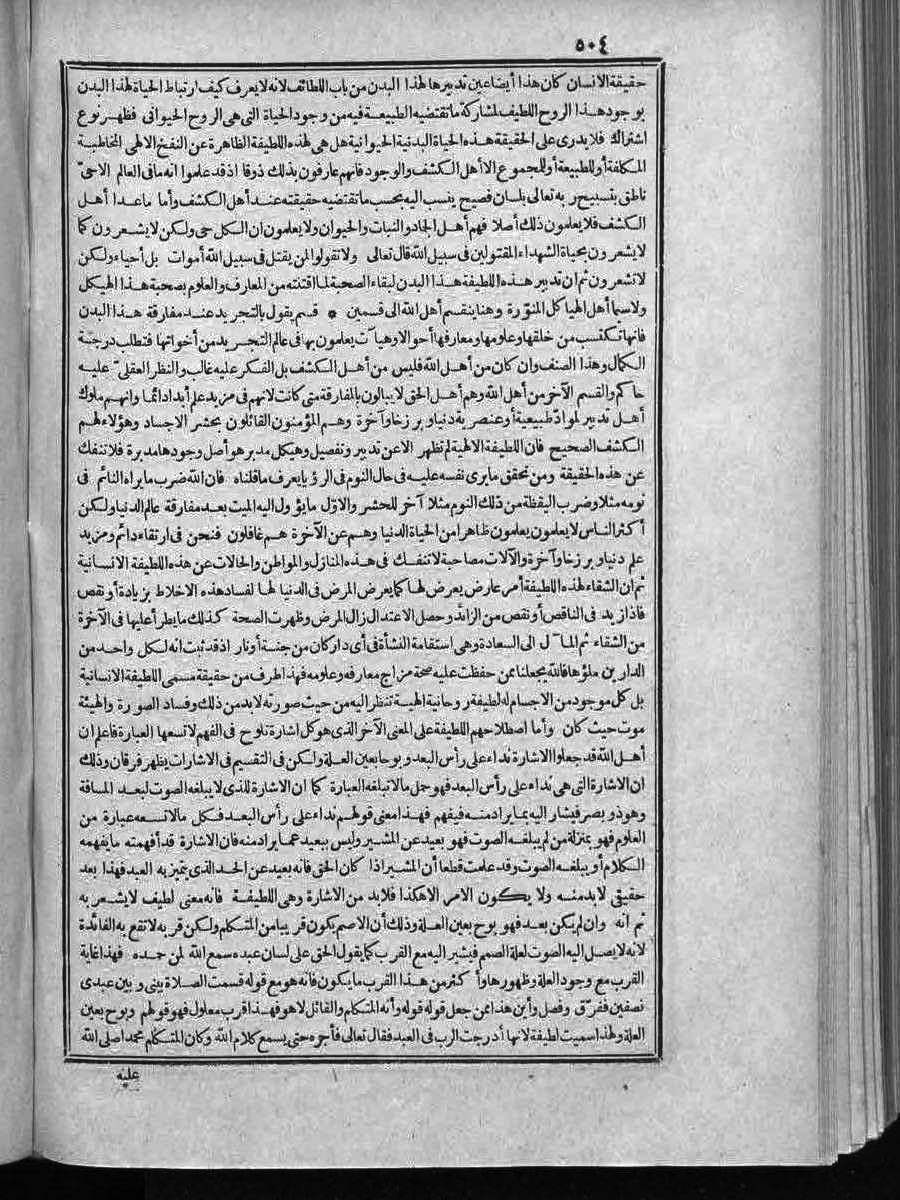 ٥٠٤
حقيقة الانسان كان هذا أيضا عين تدبيرها لهذا البدن من باب اللطائف لانه لا يعرف كيف ارتباط الحياة لهذا البدن
بوجود هذا الروح اللطيف لمشاركة ما تقتضيه الطبيعة فيه من وجود الحياة التى هى الروح الحيوانى فظهر نوع
اشتراك فلا يدرى على الحقيقة هذه الحياة البدنية الحيوانية هل هى لهذه اللطيفة الظاهرة عن النفخ الالهى المخاطبة
المكلفة أو للطبيعة أو للمجموع الا أهل الكشف والوجود فانهم عارفون بذلك ذوقا اذ قد علموا انه ما فى العالم الا حىّ
ناطق بتسبيح ربه تعالى بلسان فصيح ينسب اليه بحسب ما تقتضيه حقيقته عند أهل الكشف وأما ما عدا أهل
الكشف فلا يعلمون ذلك أصلا فهم أهل الجاد والنبات والحيوان ولا يعلمون ان الكل حى ولكن لا يشعرون كما
لا يشعرون بحياة الشهداء المقتولين فى سبيل الله قال تعالى ولا تقولوا لمن يقتل فى سبيل الله أموات بل أحياء ولكن
لا تشعرون ثم ان تدبير هذه اللطيفة هذا البدن لبقاء الصحبة لما اقتنته من المعارف والعلوم بصحبة هذا الهيكل
ولا سيما أهل الهياكل المنوّرة وهنا ينقسم أهل الله الى قسمين * قسم يقول بالتجريد عند مفارقة هذا البدن
فانها تكتسب من خلقها وعلومها ومعارفها أحوالا وهيآت يعلمون بها فى عالم التجريد من أخواتها فتطلب درجة
الكمال وهذا الصنف وان كان من أهل الله فليس من أهل الكشف بل الفكر عليه غالب والنظر العقلىّ عليه
حاكم والقسم الآخر من أهل الله وهم أهل الحق لا يبالون بالمفارقة متى كانت لانهم فى مزيد علم أبدا دائما وانهم ملوك
أهل تدبير لموادّ طبيعية أو عنصرية دنيا وبرزخا وآخرة وهم المؤمنون القائلون بحشر الاجساد وهؤلاء لهم
الكشف الصحيح فان اللطيفة الالهية لم تظهر الا عن تدبير وتفصيل وهيكل مدبر هو أصل وجودها مدبرة فلا تنفك
عن هذه الحقيقة ومن تحقق ما يرى نفسه عليه فى حال النوم فى الرؤيا يعرف ما قلناه فان الله ضرب ما يراه النائم فى
نومه مثلا وضرب اليقظة من ذلك النوم مثلا آخر للحشر والاوّل ما يؤول اليه الميت بعد مفارقة عالم الدنيا ولكن
أكثر الناس لا يعلمون يعلمون ظاهرا من الحياة الدنيا وهم عن الآخرة هم غافلون فنحن فى ارتقاء دائم ومزيد
علم دنيا وبرزخا وآخرة والآلات مصاحبة لا تنفك فى هذه المنازل والمواطن والحالات عن هذه اللطيفة الانسانية
ثم ان الشقاء لهذه اللطيفة أمر عارض يعرض لها كما يعرض المرض فى الدنيا لها لفساد هذه الاخلاط بزيادة أو نقص
فاذا زيد فى الناقص أو نقص من الزائد وحصل الاعتدال زال المرض وظهرت الصحة كذلك ما يطرأ عليها فى الآخرة
من الشقاء ثم المآل الى السعادة وهى استقامة النشأة فى أى دار كان من جنة أو نار اذ قد ثبت انه لكل واحد من
الدارين ملؤها فالله يجعلنا ممن حفظت عليه صحة مزاج معارفه وعلومه فهذا طرف من حقيقة مسمى اللطيفة الانسانية
بل كل موجود من الاجسام له لطيفة روحانية الهية تنظر اليه من حيث صورته لا بد من ذلك وفساد الصورة والهيئة
موت حيث كان وأما اصطلاحهم اللطيفة على المعنى الآخر الذى هو كل اشارة تلوح فى الفهم لا تسعها العبارة فاعلم ان
أهل الله قد جعلوا الاشارة نداء على رأس البعد وبوحا بعين العلة ولكن فى التقسيم فى الاشارات يظهر فرقان وذلك
ان الاشارة التى هى نداء على رأس البعد فهو حمل ما لا تبلغه العبارة كما ان الاشارة للذى لا يبلغه الصوت لبعد المسافة
وهو ذو بصر فيشار اليه بما يراد منه فيفهم فهذا معنى قولهم نداء على رأس البعد فكل ما لا تسعه عبارة من
العلوم فهو بمنزلة من لم يبلغه الصوت فهو بعيد عن المشير وليس ببعيد عما يراد منه فان الاشارة قد أفهمته ما يفهمه
الكلام أو يبلغه الصوت وقد علمت قطعا أن المشير اذا كان الحق فانه بعيد عن الحد الذى يتميز به العبد فهذا بعد
حقيقى لا بد منه ولا يكون الامر الا هكذا فلا بد من الاشارة وهى اللطيفة فانه معنى لطيف لا يشعر به
ثم انه وان لم يكن بعد فهو بوح بعين العلة وذلك أن الاصم يكون قريبا من المتكلم ولكن قربه لا تقع به الفائدة
لانه لا يصل اليه الصوت لعلة الصمم فيشير اليه مع القرب كما يقول الحق على لسان عبده سمع الله لمن حمده فهذا غاية
القرب مع وجود العلة وظهورها وأكثر من هذا القرب ما يكون فانه هو مع قوله قسمت الصلاة بينى وبين عبدى
نصفين ففرّق وفصل وأين هذا ممن جعل قوله قوله وأنه المتكلم والقائل لا هو فهذا قرب معلول فهو قولهم وبوح بعين
العلة ولهذا سميت لطيفة لانها أدرجت الرب فى العبد فقال تعالى فأجره حتى يسمع كلام الله وكان المتكلم محمد اصلى الله
عليه